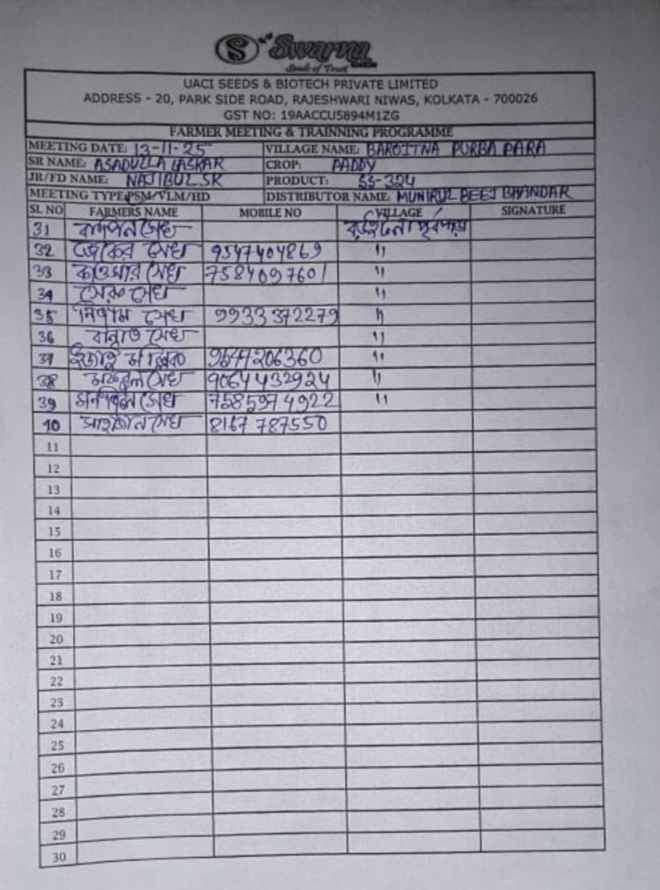 S Swarna
Seeds of Trust
UACI SEEDS & BIOTECH PRIVATE LIMITED
ADDRESS - 20, PARK SIDE ROAD, RAJESHWARI NIWAS, KOLKATA - 700026
GST NO: 19AACCU5894M1ZG
FARMER MEETING & TRAINNING PROGRAMME
MEETING DATE: 13-11-25 VILLAGE NAME: BAROITNA PURBA PARA
SR NAME: ASADULLA LASKAR CROP: PADDY
JR/FD NAME: NAJIBUL SK PRODUCT: SS-324
MEETING TYPE: PSM/VLM/HD DISTRIBUTOR NAME: MUNIRUL BEEJ BHANDAR
SL NO FARMERS NAME MOBILE NO VILLAGE SIGNATURE
31 সেখ
32 সেখ 9547404869 "
33 কাওসার সেখ 7584097601 "
34 সেখ "
35 সেখ 9933372279 "
36 সেখ "
37 মল্লিক 9647206360 "
38 সেখ 9064432924 "
39 সেখ 7585974922 "
10 সেখ 8167787550
11
12
13
14
15
16
17
18
19
20
21
22
23
24
25
26
27
28
29
30